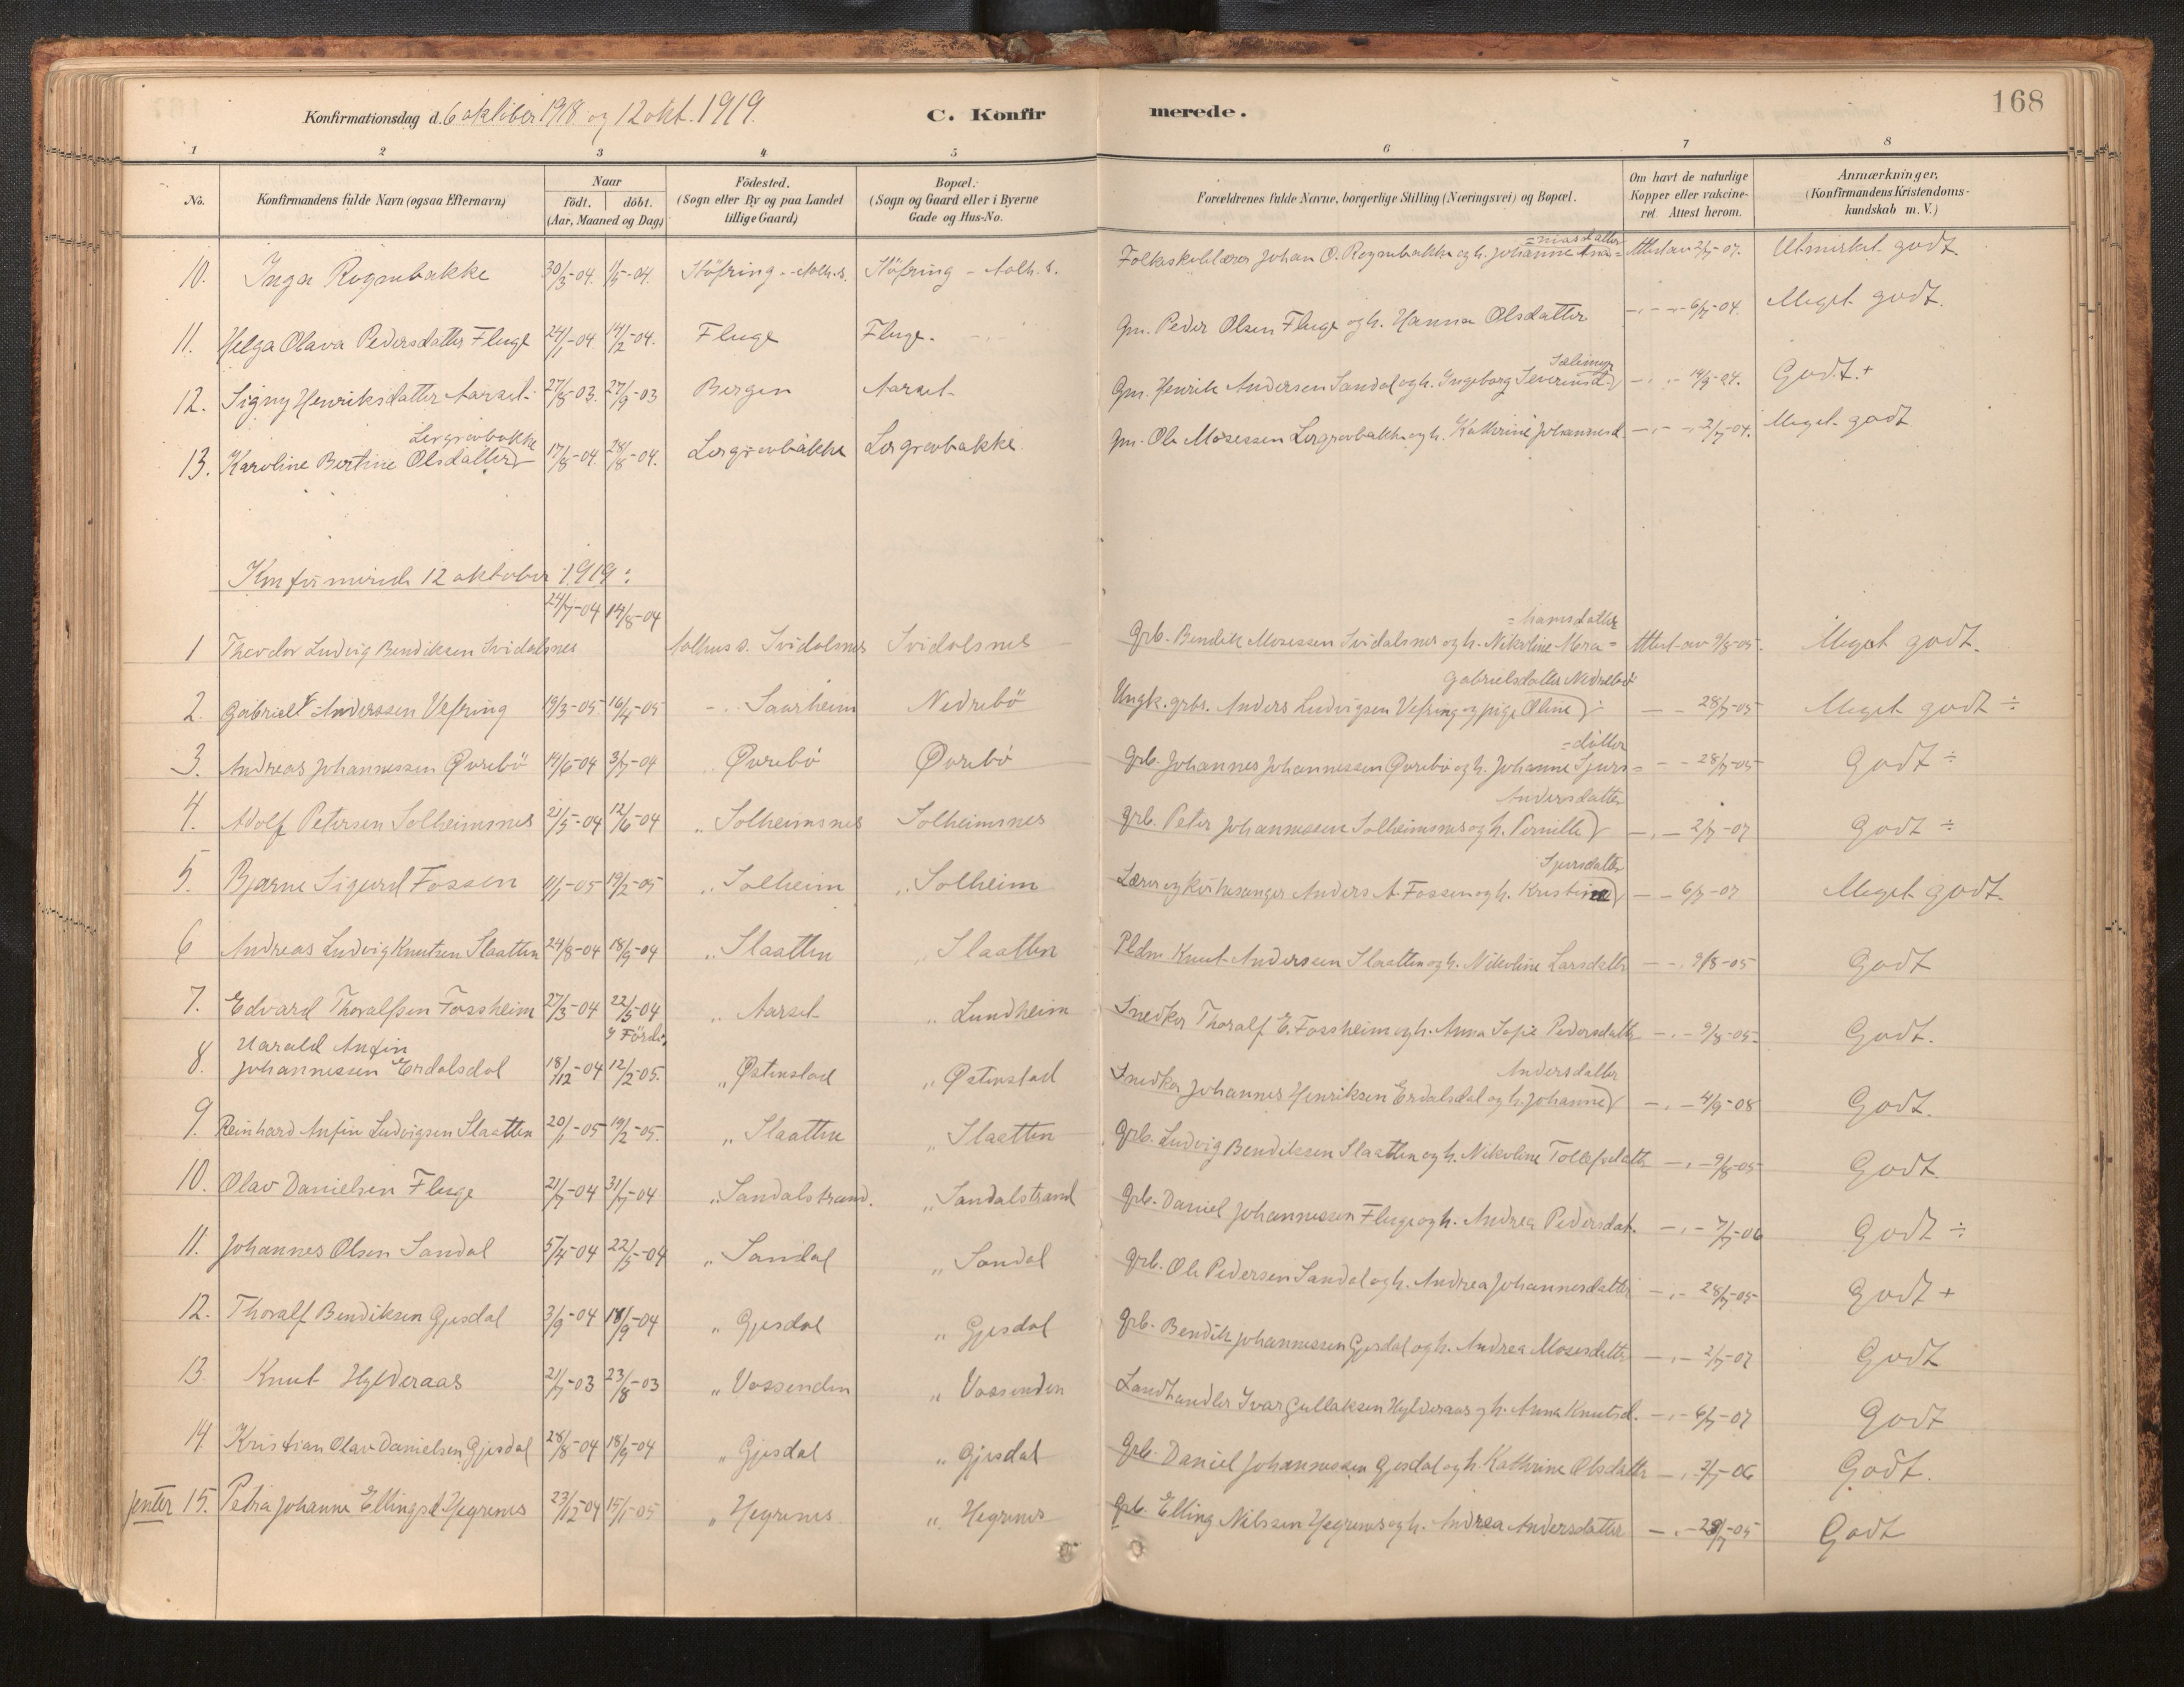 168
Konfirmationsdag d. 6 oktober 1918 og 12 okt. 1919.
C. Konfirmerede.
1 2 3 4 5 6 7 8
No. Konfirmandens fulde Navn (ogsaa Efternavn) Naar födt. döbt. (Aar, Maaned og Dag) Födested. (Sogn eller By og paa Landet tillige Gaard) Bopæl. (Sogn og Gaard eller i Byerne Gade og Hus-No. Forældrenes fulde Navne, borgerlige Stilling (Næringsvei) og Bopæl. Om havt de naturlige Kopper eller vakcineret. Attest herom. Anmærkninger. (Konfirmandens Kristendomskundskab m. V.)
10. Inga Rognebakke 30/3-04. 1/5-04. Höfring - Aolh. s. Höfring - Aolh. s. Folkeskolelærer Johan O. Rognebakke og h. Johanne Ana= =niasdatter Attest av 2/7-07. Utmerket godt.
11. Helga Olava Pedersdatter Fluge 24/1-04 14/2-04. Fluge Fluge. Gm. Peder Olsen Fluge og h. Hanna Olsdatter 6/7-04. Meget godt.
12. Signy Henriksdatter Aarset 27/8-03. 27/9-03 Bergen Aarset Gm. Henrik Andersen Sandal og h. Ingeborg Severinsd. 14/9-04. Godt +
13. Karoline Bertine Olsdatter Lergrovbakke 17/8-04. 28/8-04. Lergrovbakke Lergrovbakke Gm. Ole Mosessen Lergrovbakke og h. Kathrine Johannesd. 2/7-04. Meget godt
Konfirmerede 12 oktober 1919:
1 Theodor Ludvig Bendiksen Svidalsnes 24/7-04 14/8-04 Aolhus s. Svidalsnes Svidalsnes Grb. Bendik Mosessen Svidalsnes og h. Nikoline Abra= =hamsdatter Attest av 9/8-05. Meget godt.
2. Gabriel Anderssen Vefring 19/3-05 16/4-05 Saarheim Nedrebö Ungk. grbr. Anders Ludvigsen Vefring og pige Oline Gabrielsdatter Nedrebö 28/7-05 Meget godt ÷
3. Andreas Johannessen Øvrebö 14/6-04 3/7-04 Øvrebö Øvrebö Grb. Johannes Johannessen Øvrebö og h. Johanne Sjurs= =datter 28/7-05 Godt ÷
4. Adolf Petersen Solheimsnes 21/5-04 12/6-04 „ Solheimsnes Solheimsnes Grb. Peter Johannessen Solheimsnes og h. Pernille Andersdatter 2/7-07 Godt ÷
5. Bjarne Sigurd Fossen 11/1-05 19/2-05 „ Solheim „ Solheim Lærer og kirkesanger Anders A. Fossen og h. Kristine Sjursdatter 6/7-07 Meget godt.
6 Andreas Ludvig Knutsen Slaatten 24/8-04 18/9-04 „ Slaatten „ Slaatten Pldm. Knut Andersen Slaatten og h. Nikoline Larsdatter 9/8-05 Godt
7. Edvard Thoralfsen Fossheim 27/3-04 22/5-04 „ Aarset „ Lundheim Snedker Thoralf E. Fossheim og h. Anna Sofie Pedersdatter 9/8-05 Godt.
8. Harald Anfin Johannessen Erdalsdal 18/12-04 12/2-05. i Förde „ Østenstad „ Østenstad Snedker Johannes Henriksen Erdalsdal og h. Johanne Andersdatter 4/9-08 Godt.
9. Reinhard Anfin Ludvigsen Slaatten 20/1-05 19/2-05. „ Slaatten „ Slaatten Grb. Ludvig Bendiksen Slaatten og h. Nikoline Tollefsdatter 9/8-05 Godt
10. Olav Danielsen Fluge 21/7-04 31/7-04 „ Sandalstrand. „ Sandalstrand Grb. Daniel Johannessen Fluge og h. Andrea Pedersdat. 7/7-06 Godt ÷
11. Johannes Olsen Sandal 5/4-04 22/5-04 „ Sandal „ Sandal Grb. Ole Pedersen Sandal og h. Andrea Johannesdatter 28/7-05 Godt +
12. Thoralf Bendiksen Gjesdal 3/9-04 18/9-04 „ Gjesdal „ Gjesdal Grb. Bendik Johannessen Gjesdal og h. Andrea Mosesdatter 2/7-07 Godt
13. Knut Hylderaas 21/7-03 23/8-03 „ Vossenden „ Vossenden Landhandler Ivar Gullaksen Hylderaas og h. Anna Knutsd. 6/7-07 Godt
14. Kristian Olav Danielsen Gjesdal 28/8-04 18/9-04 „ Gjesdal „ Gjesdal Grb. Daniel Johannessen Gjesdal og h. Kathrine Olsdatter 2/7-06 Godt.
jenter 15. Petra Johanne Ellingsd. Hegrenes 23/12-04 15/1-05 „ Hegrenes „ Hegrenes Grb. Elling Nilssen Hegrenes og h. Andrea Andersdatter 28/7-05 Godt